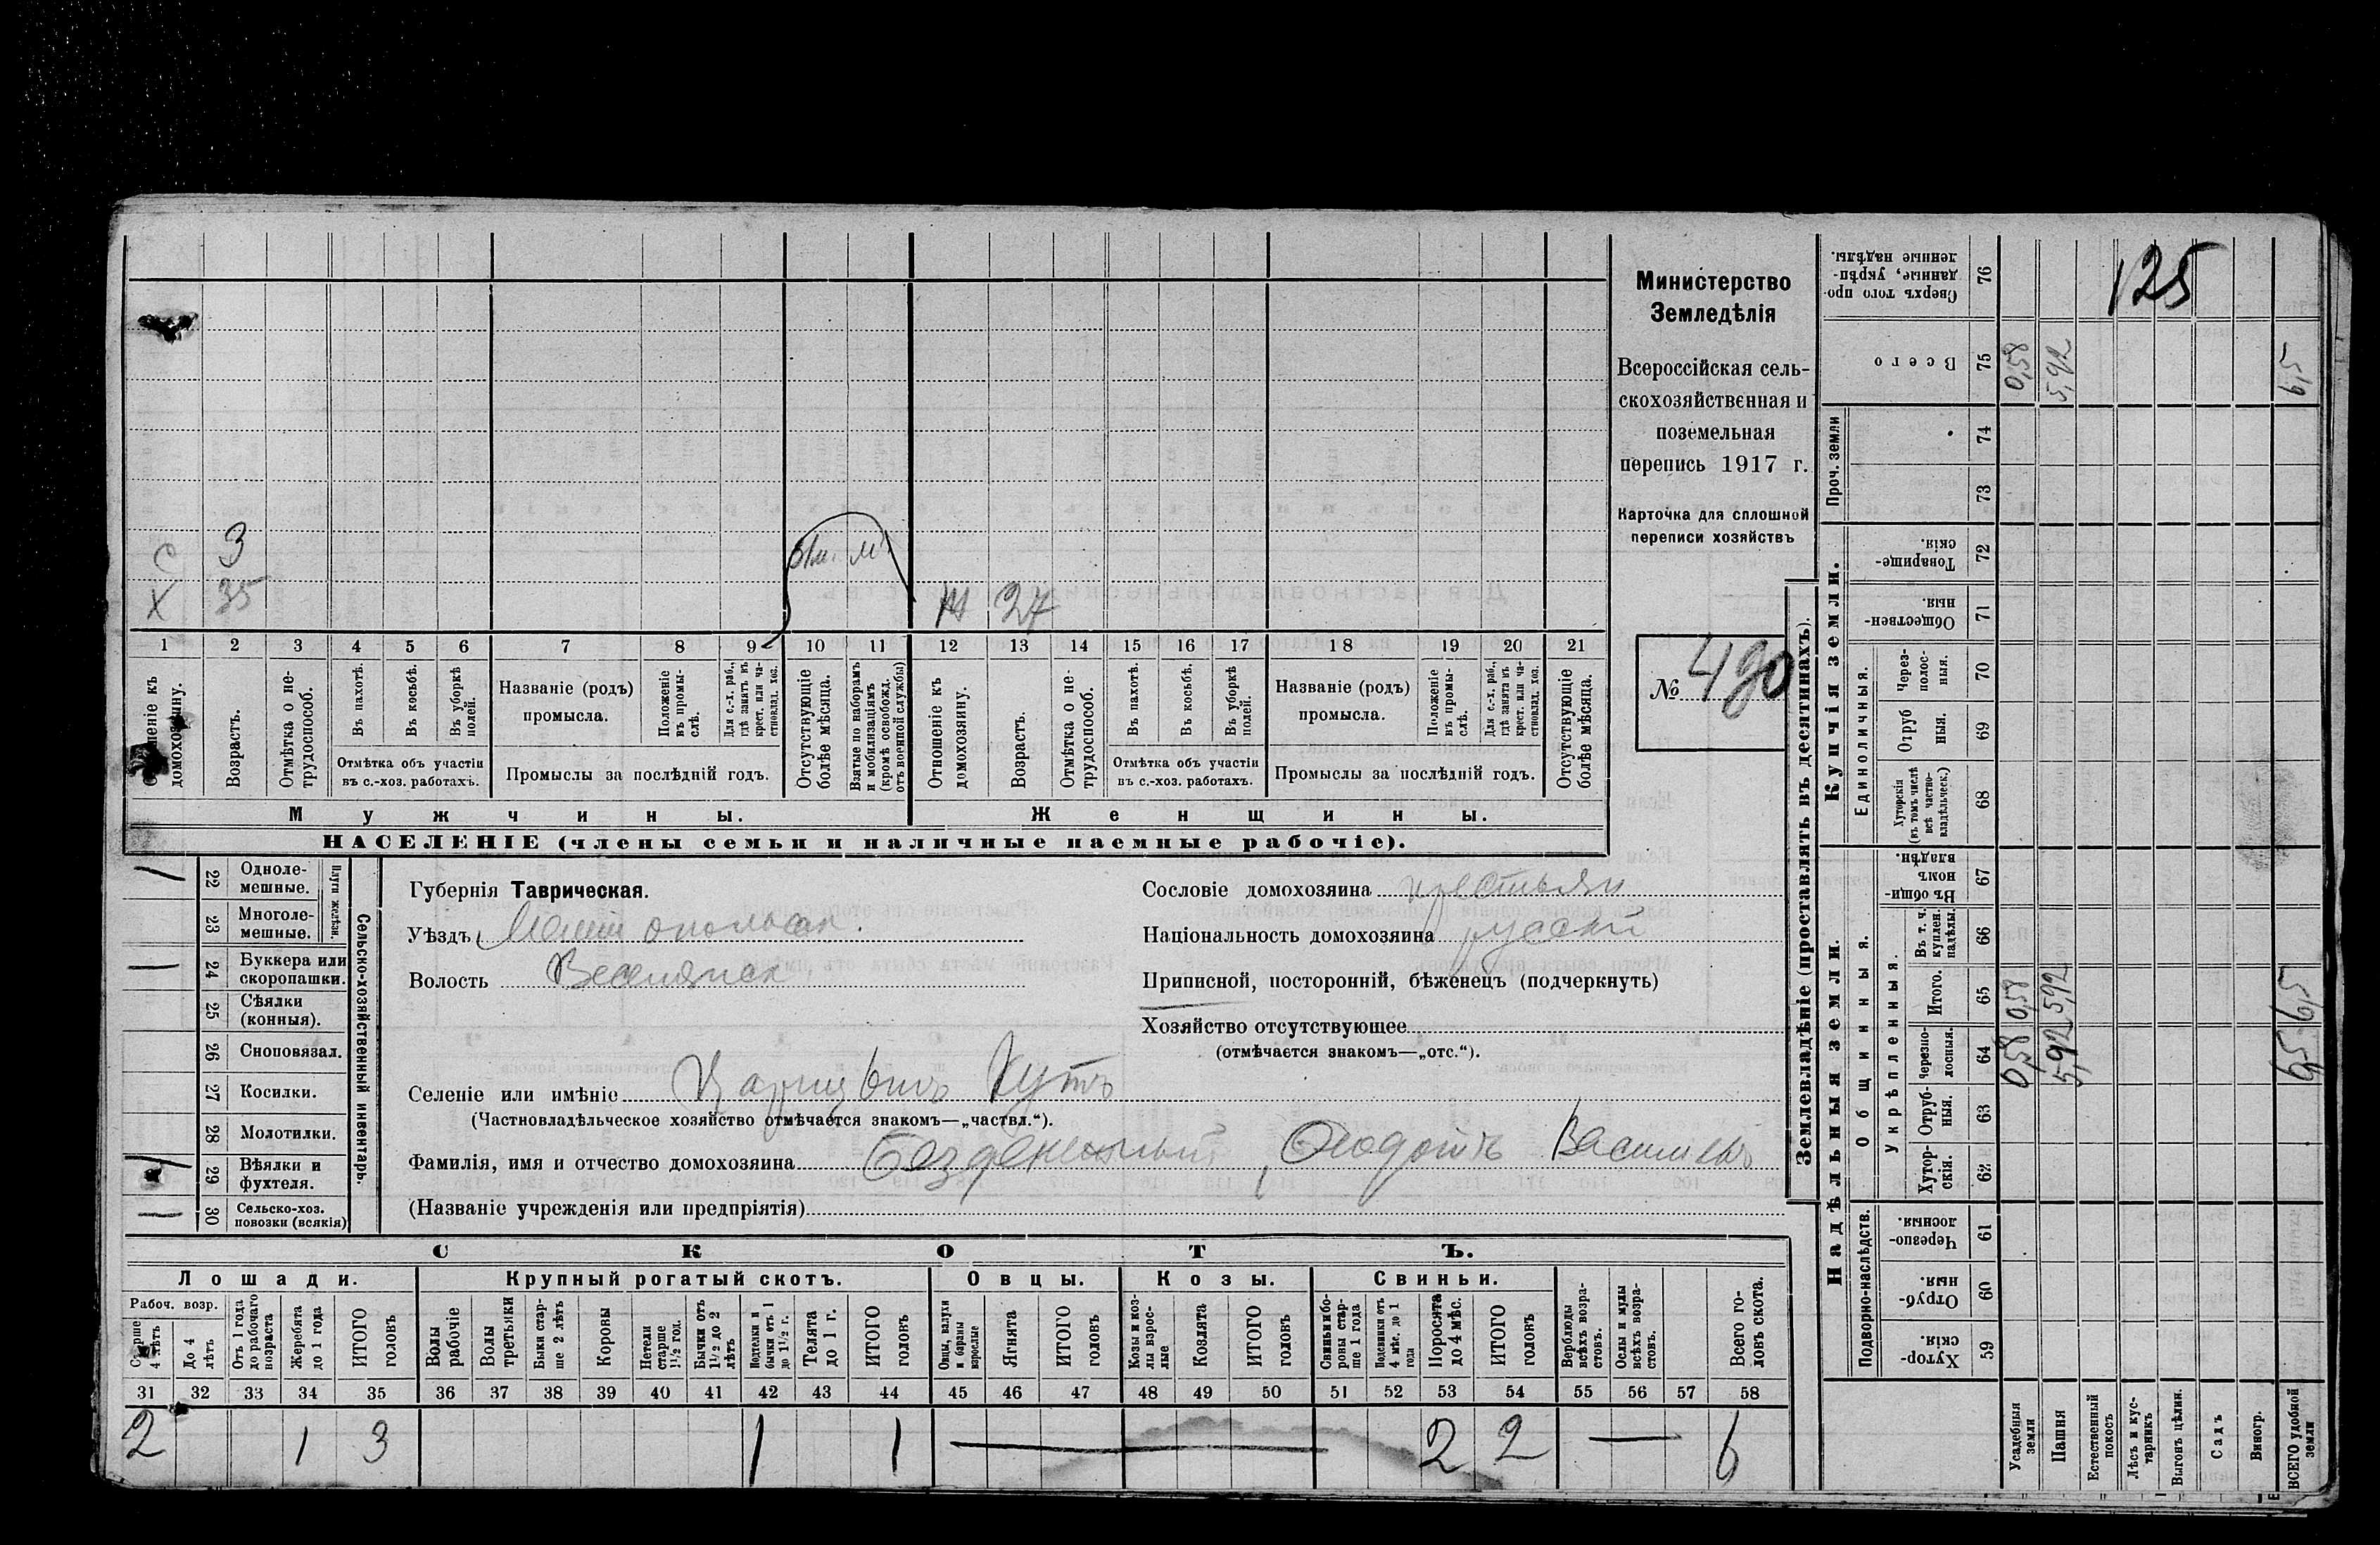 125
Министерство
Земледѣлія
Всероссійская сель-
скохозяйственная и
поземельная
перепись 1917 г.
Карточка для сплошной
переписи хозяйствъ
№
С 3
Х 35
27
1 2 3 4 5 6 7 8 9 10 11 12 13 14 15 16 17 18 19 20 21
Отношеніе къ домохозяину.
Возрастъ.
Отмѣтка о не-
трудоспособ.
Въ пахотѣ.
Въ косьбѣ.
Въ уборкѣ полей.
Отмѣтка объ участіи
въ с.-хоз. работахъ.
Названіе (родъ)
промысла.
Положеніе въ промы-
слѣ.
Для с.-х. раб.,
гдѣ занятъ въ
крест. или ча-
стновлад. хоз.
Промыслы за послѣдній годъ.
Отсутствующіе
болѣе мѣсяца.
Взятые по наборамъ
и мобилизаціямъ
(кромѣ освобожд.
отъ военной службы)
Отношеніе къ
домохозяину.
Возрастъ.
Отмѣтка о не-
трудоспособ.
Въ пахотѣ.
Въ косьбѣ.
Въ уборкѣ
полей.
Отмѣтка объ участіи
въ с.-хоз. работахъ.
Названіе (родъ)
промысла.
Положеніе
въ промы-
слѣ.
Для с.-х. раб.,
гдѣ занята въ
крест. или ча-
стновлад. хоз.
Промыслы за послѣдній годъ.
Отсутствующіе
болѣе мѣсяца.
Мужчины.
Женщины.
НАСЕЛЕНІЕ (члены семьи и наличные наемные рабочіе).
Сельско-хозяйственный инвентарь.
Плуги желѣзн.
22 Одноле-
мешные.
23 Многоле-
мешные.
24 Буккера или
скоропашки.
25 Сѣялки
(конныя).
26 Сноповязал.
27 Косилки.
28 Молотилки.
29 Вѣялки и
фухтеля.
30 Сельско-хоз.
повозки (всякія)
Губернія Таврическая.
Уѣздъ
Волость
Селеніе или имѣніе
(Частновладѣльческое хозяйство отмѣчается знакомъ—„частвл.“).
Фамилія, имя и отчество домохозяина
(Названіе учрежденія или предпріятія)
Сословіе домохозяина крестьян
Національность домохозяина русский
Приписной, посторонній, бѣженецъ (подчеркнуть)
Хозяйство отсутствующее
(отмѣчается знакомъ—„отс.“).
СКОТЪ.
Лошади.
Рабоч. возр.
Старше
4 лѣтъ
До 4
лѣтъ
Отъ 1 года
до рабочаго
возраста
Жеребята
до 1 года
ИТОГО
головъ
Крупный рогатый скотъ.
Волы
рабочіе
Волы
третьяки
Быки стар-
ше 2 лѣтъ
Коровы
Нетели
старше
1½ год.
Бычки отъ
1½ до 2
лѣтъ
Подтелки и
бычки отъ 1
до 1½ г.
Телята
до 1 г.
ИТОГО
головъ
Овцы.
Овцы, валухи
и бараны
взрослые
Ягнята
ИТОГО
головъ
Козы.
Козы и коз-
лы взрос-
лые
Козлята
ИТОГО
головъ
Свиньи.
Свиньи и бо-
ровы стар-
ше 1 года
Подсвинки отъ
4 мѣс. до 1
года
Поросята
до 4 мѣс.
ИТОГО
головъ
Верблюды
всѣхъ возра-
стовъ.
Ослы и мулы
всѣхъ возра-
стовъ.
Всего го-
ловъ скота.
31 32 33 34 35 36 37 38 39 40 41 42 43 44 45 46 47 48 49 50 51 52 53 54 55 56 57 58
2 1 3 1 1 — 2 2 — 6
Землевладѣніе (проставлять въ десятинахъ).
Надѣльныя земли.
Подворно-наслѣдств.
59 Хутор-
скія.
60 Отруб-
ныя.
61 Черезпо-
лосныя.
Общинныя.
Укрѣпленныя.
62 Хутор-
скія.
63 Отруб-
ныя.
64 Черезпо-
лосныя.
65 Итого.
66 Въ т. ч.
куплен.
надѣлы.
67 Въ общи-
номъ
владѣн.
Купчія земли.
Единоличныя.
68 Хуторскія
(въ томъ числѣ
всѣ частно-
владѣльческ.)
69 Отруб
ныя.
70 Через-
полос-
ныя.
71 Обществен-
ныя.
72 Товарище-
скія.
Проч. земли
73
74
75 Всего
76 Сверхъ того про-
данные, укрѣп-
ленные надѣлы.
Усадебныя
земли
0,58 0,58 0,58
Пашня
5,92 5,92 5,92
Естественный
покосъ
Лѣсъ и кус-
тарникъ
Выгонъ цѣлин.
Садъ
Виногр.
ВСЕГО удобной
земли
6,5 6,5 6,5